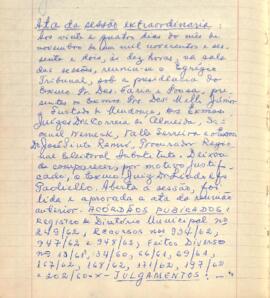 Ata da sessão extraordinária:
Aos vinte e quatro dias do mês de
novembro de um mil novecentos e ses-
senta e dois, às dez horas, na sala
das sessões, reuniu-se o Egrégio
Tribunal, sob a presidência do
Exmo Sr. Des. Faria e Sousa, pre-
sentes os Exmos Srs. Des. Mello Júnior
Furtado de Mendonça, dos Exmos
Juízes Drs. Correia de Almeida,
Valle Ferreira e o Exmo
Dr. José Pinto Renó, Procurador Regio-
nal Eleitoral Substituto. Deixou
de comparecer, por motivo justifi-
cado, o Exmo Juiz Dr.
Paoliello. Aberta a sessão, foi
lida e aprovada a ata da reunião
anterior. ACÓRDÃOS PUBLICADOS:
Registro de Diretório Municipal nº
249/62, Recursos nos 934/62,
947/62 e 948/62, Feitos Diversos
nos 18/61, 34/60, 66/61, 69/61,
167/62, 168/62, 171/62, 197/62
e 202/60. - JULGAMENTOS: